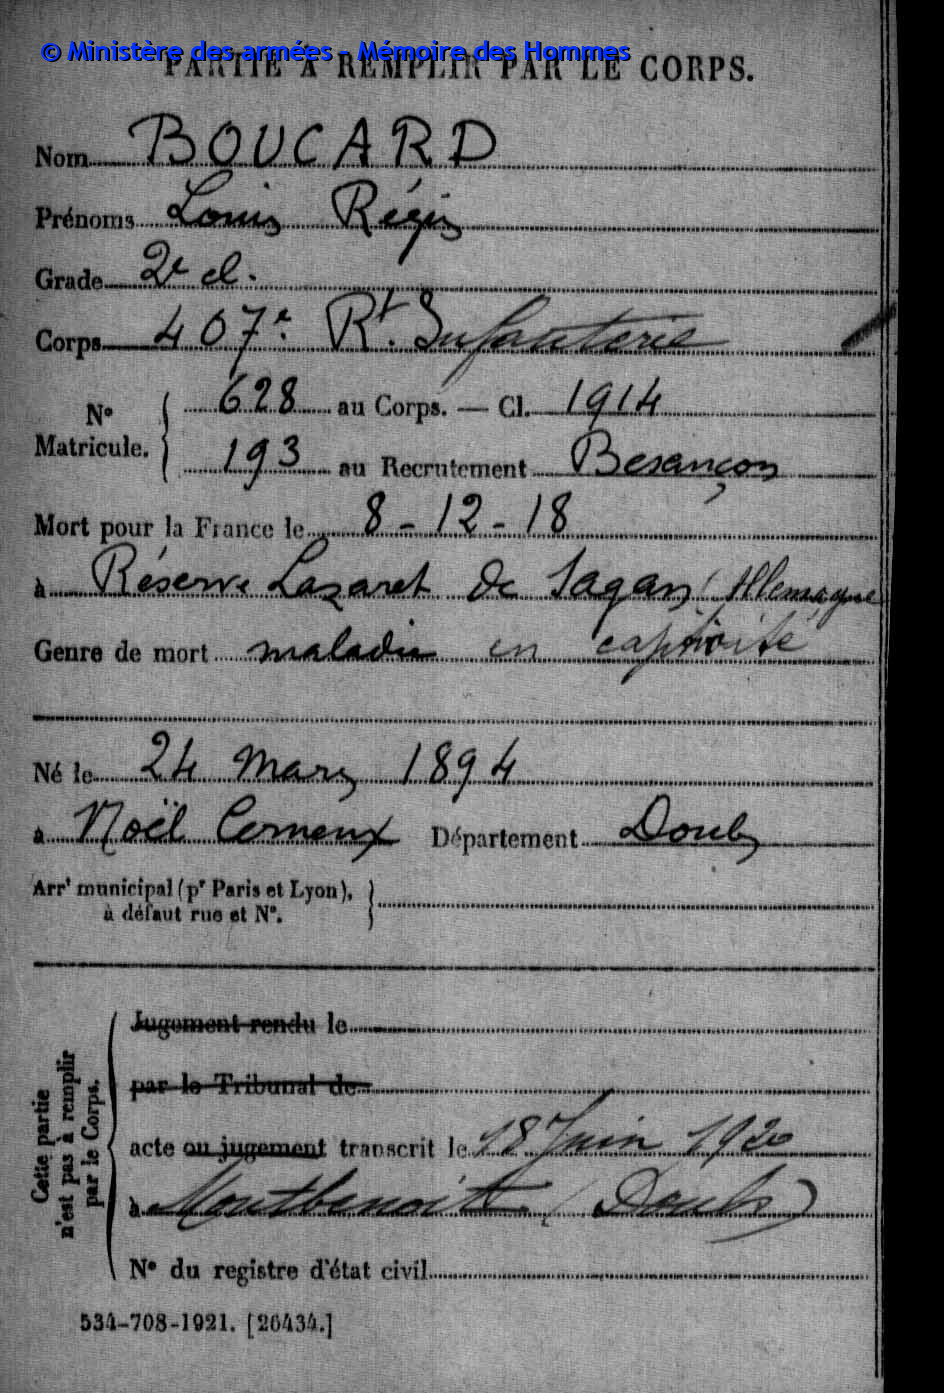 © Ministère des armées - Mémoire des Hommes
PARTIE À REMPLIR PAR LE CORPS.
Nom BOUCARD
Prénoms Louis Régis
Grade 2e cl.
Corps 407e Rt. Infanterie
N° Matricule. 628 au Corps. — Cl. 1914
193 au Recrutement Besançon
Mort pour la France le 8-12-18
à Réserve Lazaret de Sagan (Allemagne
Genre de mort maladie en captivité
Né le 24 Mars 1894
à Noël Cerneux Département Doubs
Arrt municipal (pr Paris et Lyon),
à défaut rue et N°.
Cette partie
n'est pas à remplir
par le Corps.
Jugement rendu le
par le Tribunal de
acte ou jugement transcrit le 18 Juin 1920
à Montbenoit (Doubs)
N° du registre d'état civil
534-708-1921. [26434.]